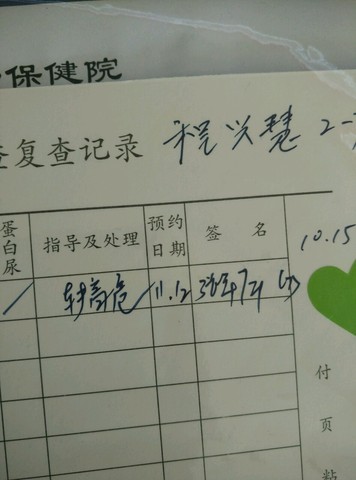 保健院
查复查记录 程兴慧 2-
10.15
蛋白尿 指导及处理 预约日期 签 名
/ 转高危 11.12
付
页
粘